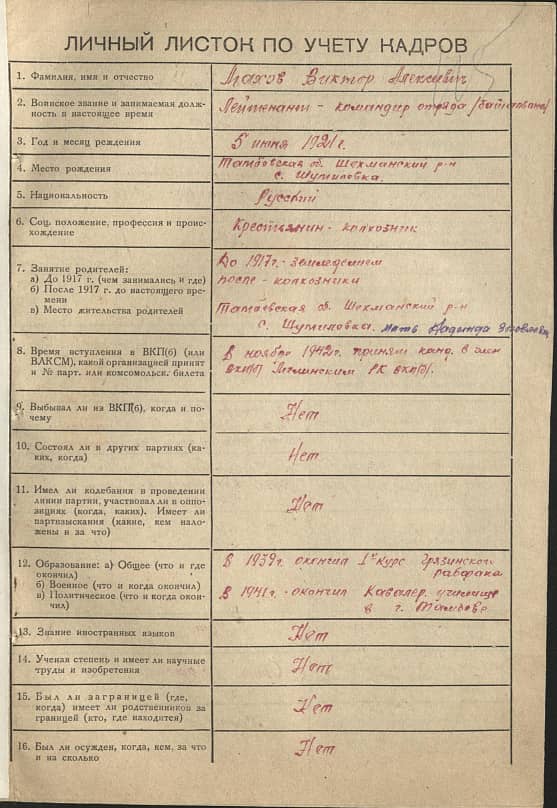 ЛИЧНЫЙ ЛИСТОК ПО УЧЕТУ КАДРОВ
1. Фамилия, имя и отчество
Виктор Алексеевич
2. Воинское звание и занимаемая долж-
ность в настоящее время
Лейтенант - командир отряда
3. Год и месяц рождения
5 июня 1921 г.
4. Место рождения
Тамбовская об. Шехманский р-н
с. Шумиловка.
5. Национальность
Русский
6. Соц. положение, профессия и проис-
хождение
Крестьянин - колхозник
7. Занятие родителей:
а) До 1917 г. (чем занимались и где)
б) После 1917 г. до настоящего вре-
мени
в) Место жительства родителей
До 1917г. - земледелием
после - колхозники
Тамбовская об. Шехманский р-н
с. Шумиловка. мать Надежда Яковлевна
8. Время вступления в ВКП(б) (или
ВЛКСМ), какой организацией принят
и № парт. или комсомольск. билета
В ноябре 1942г. принят канд. в члены
ВКП(б) РК ВКП(б).
9. Выбывал ли из ВКП(б), когда и по-
чему
Нет
10. Состоял ли в других партиях (ка-
ких, когда)
Нет
11. Имел ли колебания в проведении
линии партии, участвовал ли в оппо-
зициях (когда, каких). Имеет ли
партвзыскания (какие, кем нало-
жены и за что)
Нет
12. Образование: а) Общее (что и где
окончил)
б) Военное (что и когда окончил)
в) Политическое (что и когда окон-
чил)
В 1939г. окончил 1й курс Грязинского
рабфака
В 1941г. - окончил Кавалер. училище
в г. Тамбове
13. Знание иностранных языков
Нет
14. Ученая степень и имеет ли научные
труды и изобретения
Нет
15. Был ли заграницей (где,
когда) имеет ли родственников за
границей (кто, где находятся)
Нет
16. Был ли осужден, когда, кем, за что
и на сколько
Нет